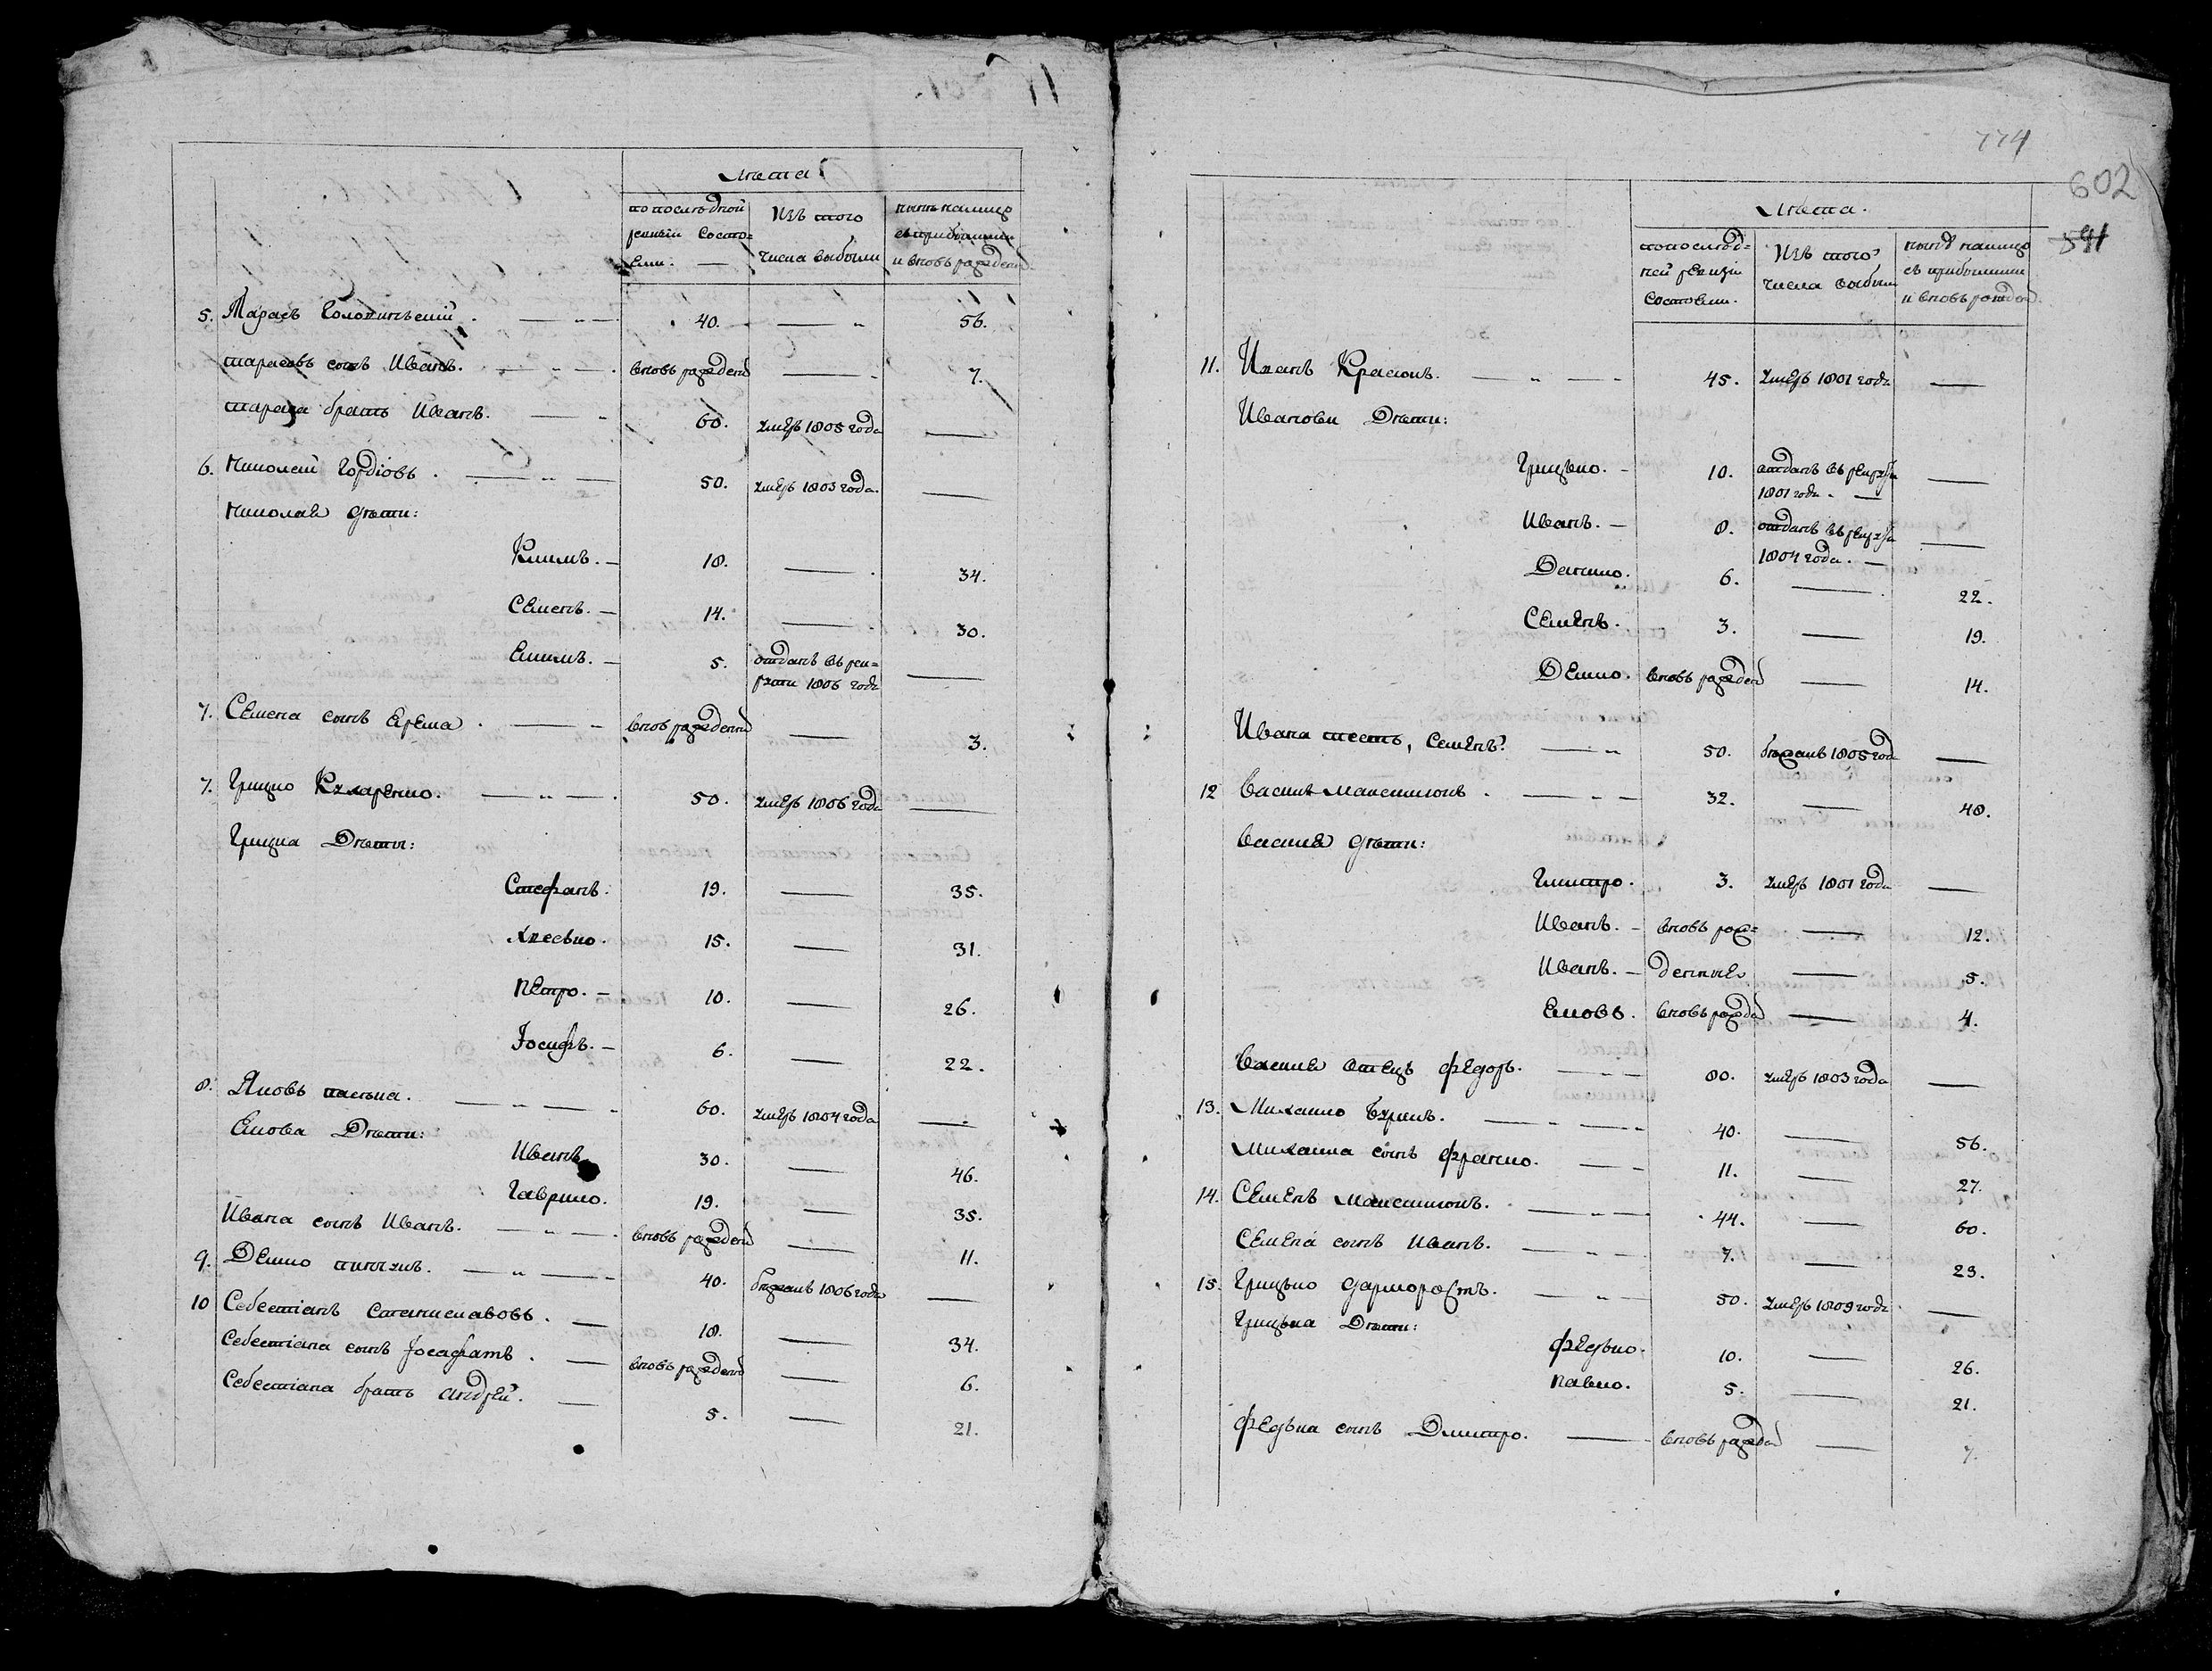 Лѣта
по послѣдной ревизіи состояли: — | Изъ того числа выбыли | нынѣ налицо съ прибылыми и вновь рожденными
5. Тарасъ — " — 40. — " 56.
тарасовъ сынъ Иванъ. — " — вновь рожденой — 7.
тараса братъ Иванъ. — " 60. умеръ 1805 года —
6. Николай Гордіовъ. — " — 50. умеръ 1803 года. —
Николая дѣти:
Климъ. — 18. — 34.
Семенъ. — 14. — 30.
Екимъ. — 5. отданъ въ рекруты 1806 года —
7. Семена сынъ Ерема. — " вновь рожденной — 3.
7. Грицко — " — 50. умеръ 1806 года —
Грицка Дѣти:
Стефанъ. 19. — 35.
15. — 31.
Петро. — 10. — 26.
Іосифъ. — 6. — 22.
8. Яковъ — " — 60. умеръ 1804 года —
Екова Дѣти:
Иванъ 30. — 46.
Гаврило. 19. — 35.
Ивана сынъ Иванъ. — " — вновь рожденой — 11.
9. Демко — " — 40. бѣжалъ 1806 года —
10 Себестіанъ Станиславовъ. — 18. — 34.
Себестіана сынъ Іосафатъ. — вновь рожденой — 6.
Себестіана братъ андрей. — 5. — 21.
774
602
591
Лѣта.
по послѣдней ревизіи состояли. | Изъ того числа выбыли | нынѣ налицо съ прибылыми и вновь рожден.
11. Иванъ — " — 45. умеръ 1801 года —
Ивановы Дѣти:
Грицько. — 10. отданъ въ рекруты 1801 года. — —
Иванъ. — 8. отданъ въ рекруты 1804 года. — —
Данило. 6. — 22.
Семенъ. 3. — 19.
Демко. вновь рожден — 14.
Ивана тесть, Семенъ. — " 50. бѣжалъ 1805 года —
12 Василь Максимюкъ. — " — 32. — 48.
Василя дѣти:
Гмитро. 3. умеръ 1801 года —
Иванъ. — вновь рож= — 12.
Иванъ. — денныя — 5.
Яковъ. вновь рожден — 4.
Василя отецъ федоръ. — " — 80. умеръ 1803 года —
13. Михайло — " — 40. — 56.
Михайла сынъ франко. — 11. — 27.
14. Семенъ Максимюкъ. — " — 44. — 60.
Семена сынъ Иванъ. — " — 7. — 23.
15. Грицько — " — 50. умеръ 1809 года —
Грицька Дѣти:
федько. 10. — 26.
павло. 5. — 21.
федька сынъ Дмитро. — вновь рожден — 7.